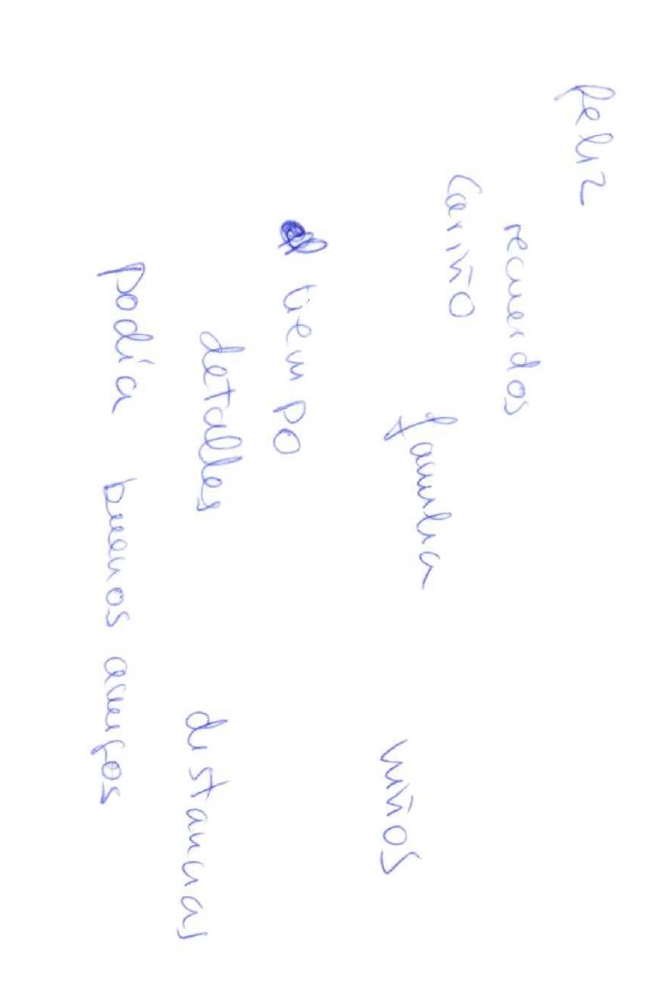 feliz
recuerdos
Cariño
familia
niños
el tiempo
detalles
distancias
podía buenos amigos